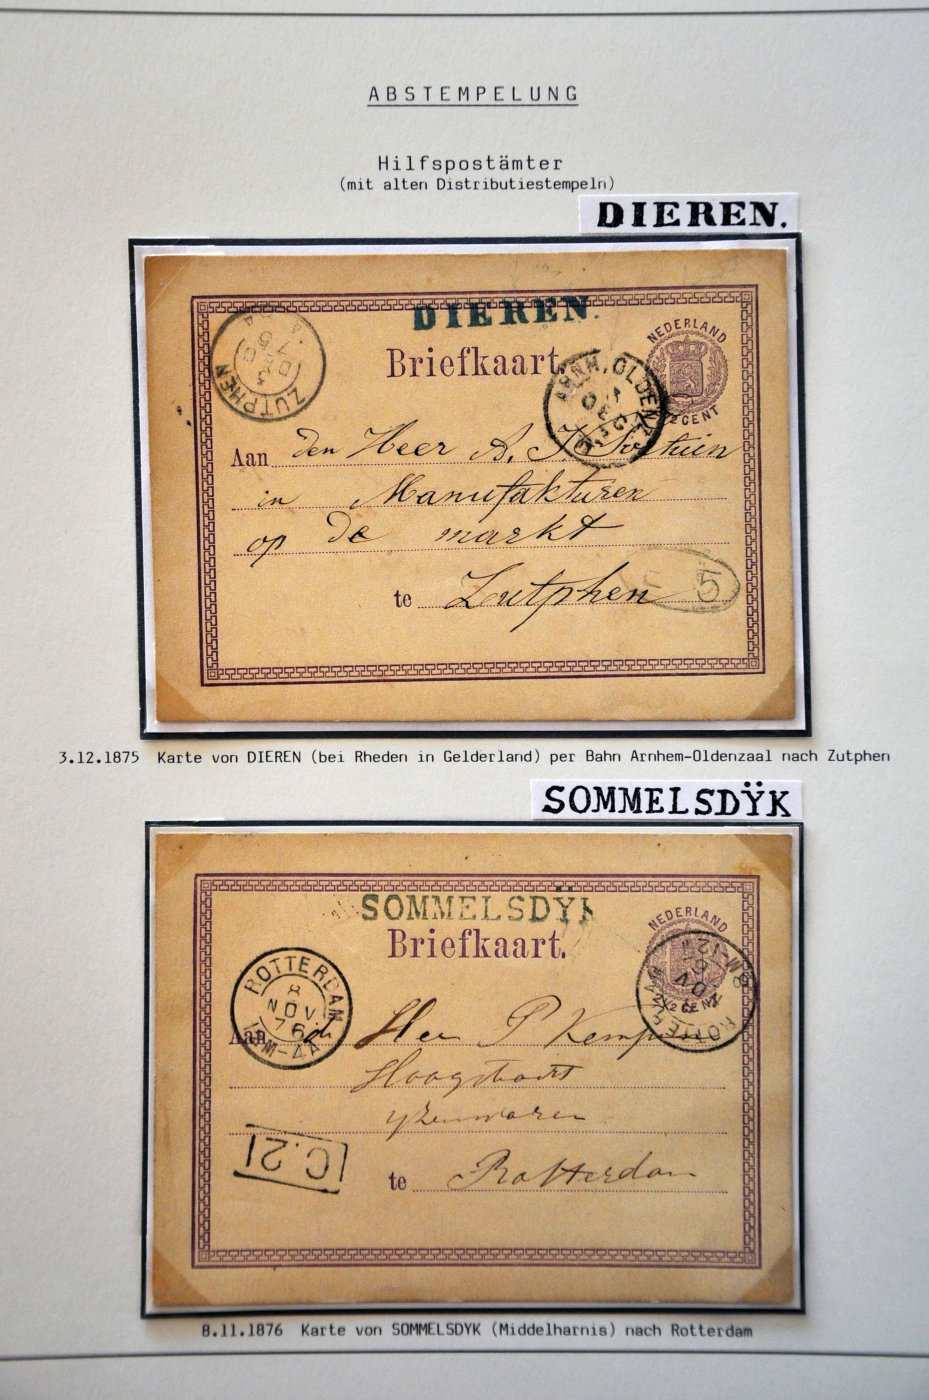 ABSTEMPELUNG
Hilfspostämter
(mit alten Distributiestempeln)
DIEREN.
DIEREN.
NEDERLAND
Briefkaart.
CENT
ZUTPHEN
ARNH. OLDENZ
Aan den Heer A.
in Manufakturen
op de markt
te Zutphen
5
3.12.1875 Karte von DIEREN (bei Rheden in Gelderland) per Bahn Arnhem-Oldenzaal nach Zutphen
SOMMELSDŸK
SOMMELSDŸK
NEDERLAND
Briefkaart.
CENT
ROTTERDAM
8
NOV.
76
12M-4A
ROTTERDAM
NOV
8M-12M
Aan
Rotterdam
C.21
te
8.11.1876 Karte von SOMMELSDYK (Middelharnis) nach Rotterdam